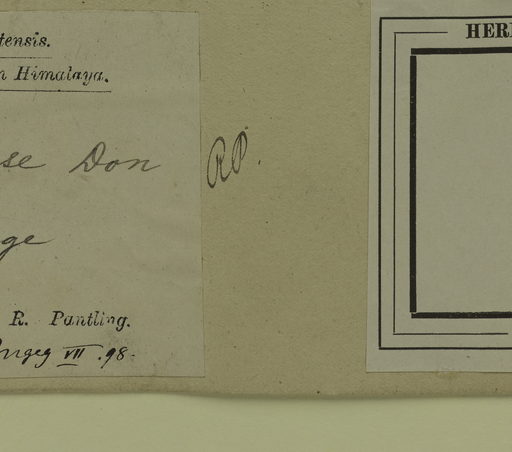 tensis.
n Himalaya.
se Don
ge
R. Pantling.
VII .98.
RP.
HER